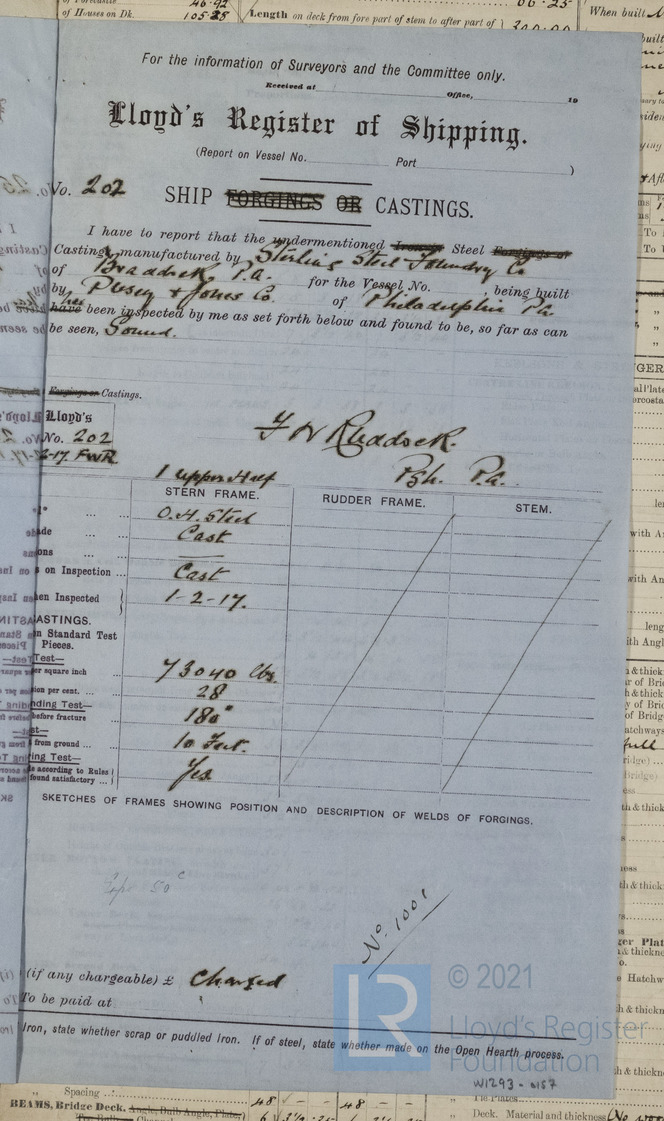 of Forecastle 46.92
of Houses on Dk. 105.25
Length on deck from fore part of stem to after part of
When built
For the information of Surveyors and the Committee only.
Received at Office, 19
Lloyd's Register of Shipping.
(Report on Vessel No. Port )
No. 202
SHIP FORGINGS OR CASTINGS.
I have to report that the undermentioned Steel Forgings or
Castings manufactured by Sterling Steel Foundry Co
of Braddock P.a. for the Vessel No. being built
by Pusey & Jones Co. of Philadelphia Pa
have has been inspected by me as set forth below and found to be, so far as can
be seen, Sound.
Forgings or Castings.
Lloyd's
No. 202
2-17 FWR
F W Ruddock.
Pgh. P.a.
1 upper Half
STERN FRAME. RUDDER FRAME. STEM.
O.H. Steel
Cast
on Inspection ... Cast
Inspected 1-2-17.
CASTINGS.
in Standard Test
Pieces.
Test—
square inch 73040 lbs.
per cent. ... 28
Test—
before fracture 180°
from ground ... 10 Feet.
Test—
as according to Rules
found satisfactory ... Yes
SKETCHES OF FRAMES SHOWING POSITION AND DESCRIPTION OF WELDS OF FORGINGS.
No. 1001
(if any chargeable) £ Charged
To be paid at
Iron, state whether scrap or puddled Iron. If of steel, state whether made on the Open Hearth process.
© 2021
Lloyd's Register
Foundation
W1293-0157
Spacing
BEAMS, Bridge Deck, Angle, Bulb Angle, Plate,
48 — — 48 — —
Tie Plates
Deck. Material and thickness